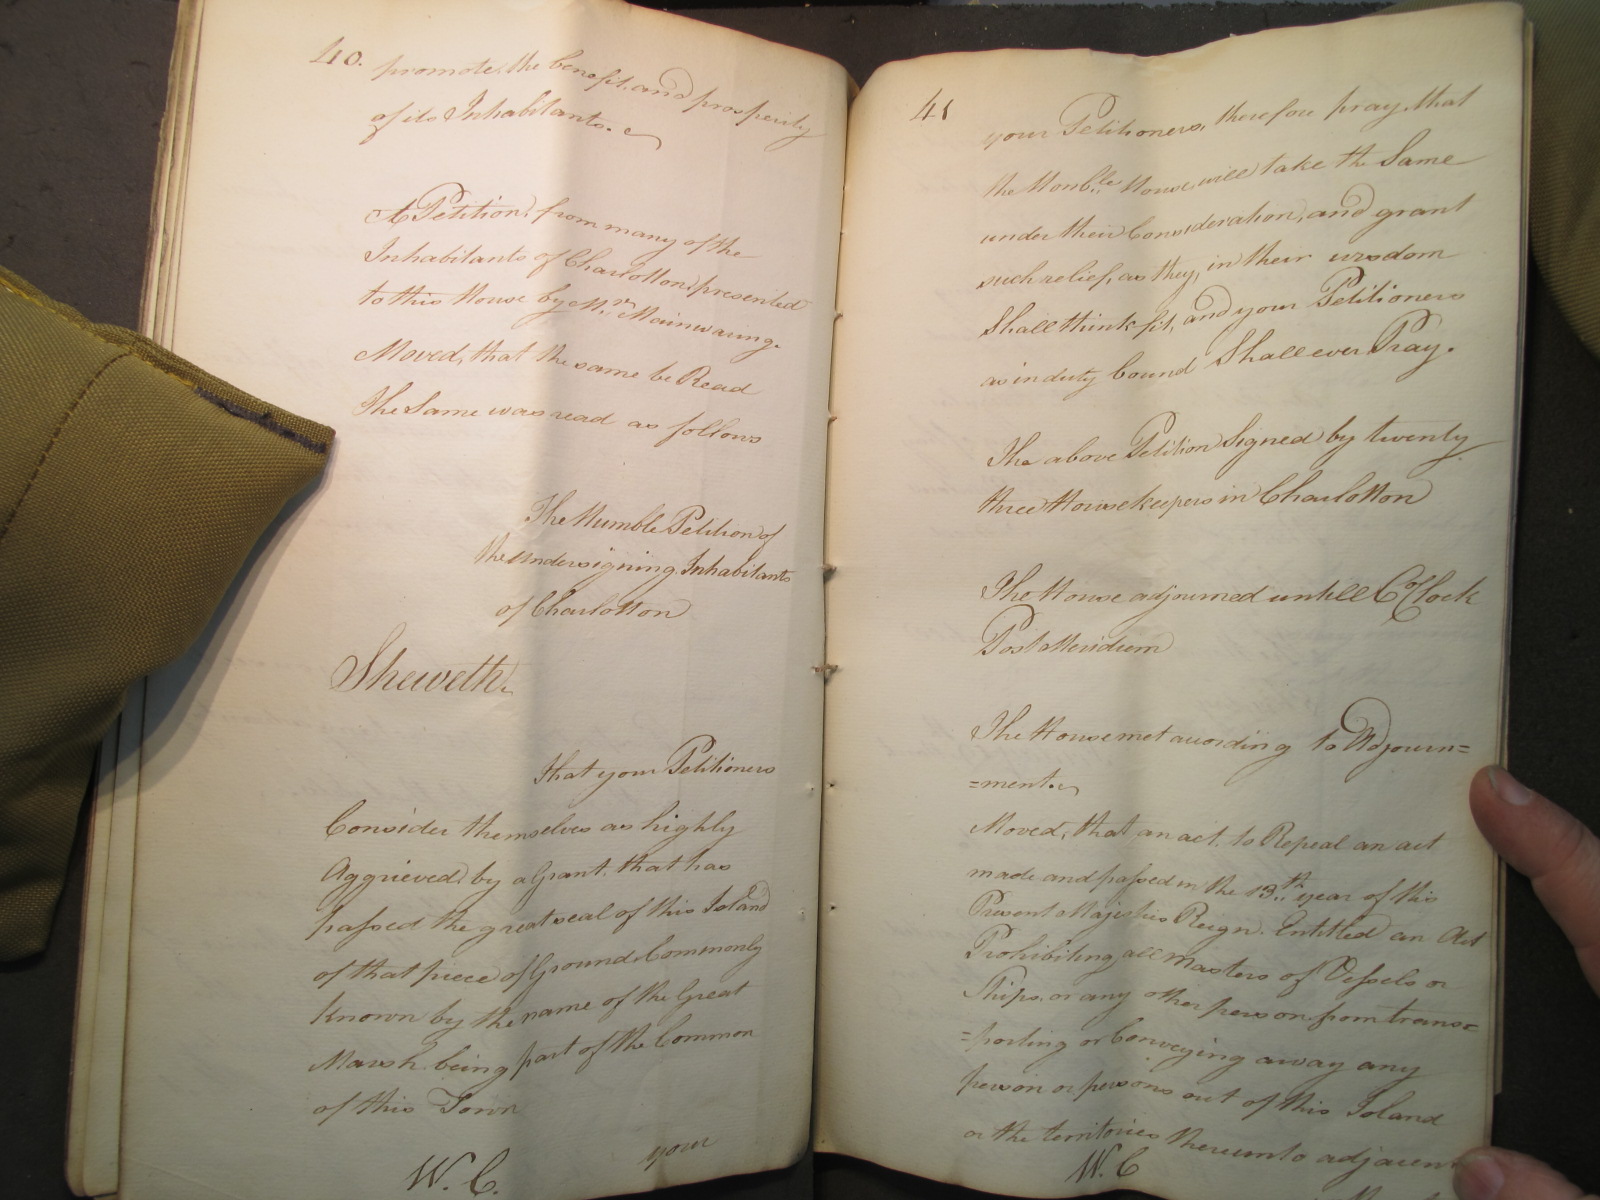 40. promote the benefit, and prosperity
of its Inhabitants.
A Petition, from many of the
Inhabitants of Charlotton presented
to this House by Mr. Mainwaring.
Moved, that the same be Read
The Same was read as follows
The Humble Petition of
the undersigning Inhabitants
of Charlotton
Sheweth.
That your Petitioners
Consider themselves as highly
Aggrieved by a Grant, that has
passed the great seal of this Island
of that piece of Ground Commonly
Known by the name of the Great
Marsh being part of the Common
of this Town
your
W. C.
41
your Petitioners, therefore pray, that
the Honble. House will take the Same
under their Consideration, and grant
such relief, as they, in their wisdom
Shall think fit, and your Petitioners
as in duty bound Shall ever Pray.
The above Petition Signed by twenty
three Housekeepers in Charlotton
The House adjourned untill 6 o'Clock
Post Meridiem
The House met according to Adjourn=
=ment.
Moved, that an act, to Repeal an act
made and passed in the 13th. year of this
Present Majesties Reign. Entitled an Act
Prohibiting all Masters of Vessels or
Ships, or any other person from trans=
=porting or Conveying away any
person or persons out of this Island
or the territories thereunto adjacent
W. C